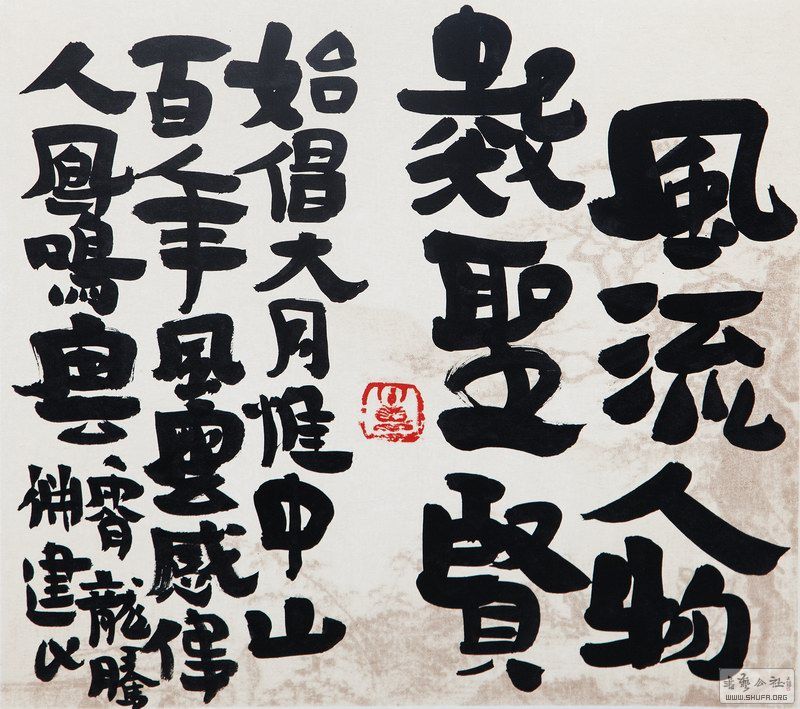 風流人物
數聖賢
始倡大同惟中山
百年風雲感偉
人鳳鳴粵
霄龍騰
佛建
書藝公社
WWW.SHUFA.ORG